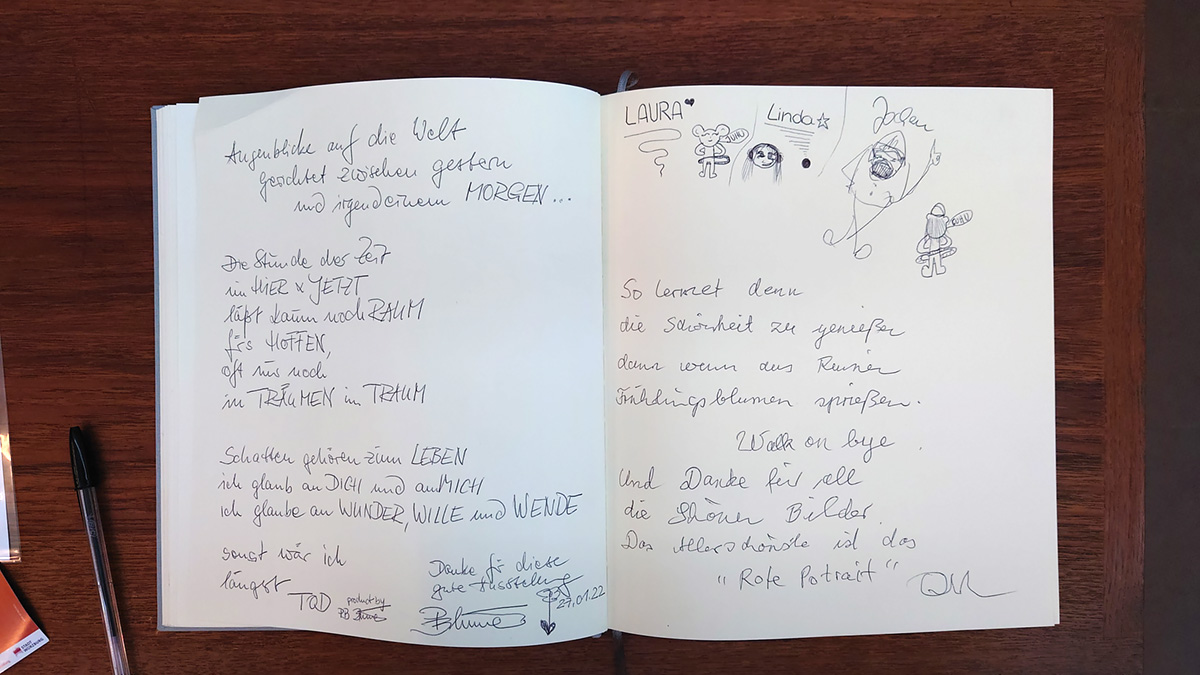 Augenblicke auf die Welt
Gesichtet zwischen gestern
und irgendeinem MORGEN...
Die Stunde der Zeit
im HIER & JETZT
läßt kaum noch RAUM
fürs HOFFEN,
oft nur noch
in TRÄUMEN im TRAUM
Schatten gehören zum LEBEN
ich glaub an DICH und an MICH
ich glaube an WUNDER, WILLE und WENDE
sonst wär ich
längst TOD
product by
Danke für diese
gute Ausstellung
27.01.22
Blume
LAURA
JUHU
Linda
Jochen
JUHU
So lernet denn
die Schönheit zu genießen
dann wenn aus Ruinen
Frühlingsblumen sprießen.
Walk on bye
Und Danke für all
die Schöner Bilder.
Das Allerschönste ist das
"Rote Potrait"
STADT